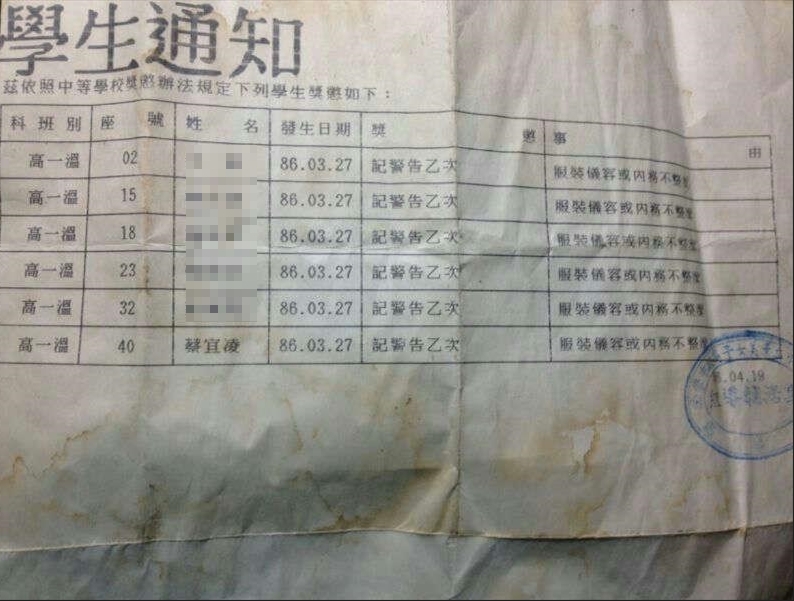 學生通知
茲依照中等學校獎懲辦法規定下列學生獎懲如下：
科班別 座號 姓名 發生日期 獎懲 事由
高一溫 02 86.03.27 記警告乙次 服裝儀容或內務不整
高一溫 15 86.03.27 記警告乙次 服裝儀容或內務不整
高一溫 18 86.03.27 記警告乙次 服裝儀容或內務不整
高一溫 23 86.03.27 記警告乙次 服裝儀容或內務不整
高一溫 32 86.03.27 記警告乙次 服裝儀容或內務不整
高一溫 40 蔡宜凌 86.03.27 記警告乙次 服裝儀容或內務不整
.04.19